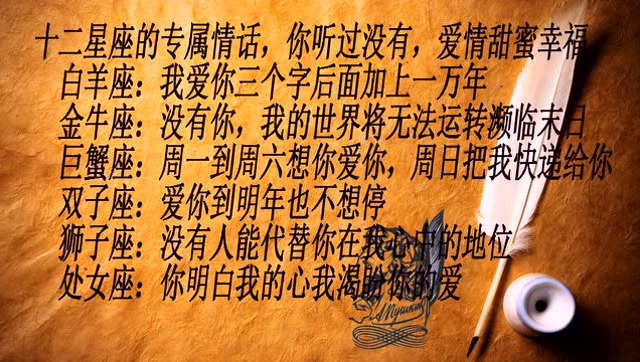 十二星座的专属情话，你听过没有，爱情甜蜜幸福
白羊座：我爱你三个字后面加上一万年
金牛座：没有你，我的世界将无法运转濒临末日
巨蟹座：周一到周六想你爱你，周日把我快递给你
双子座：爱你到明年也不想停
狮子座：没有人能代替你在我心中的地位
处女座：你明白我的心我渴盼你的爱
Пушкин